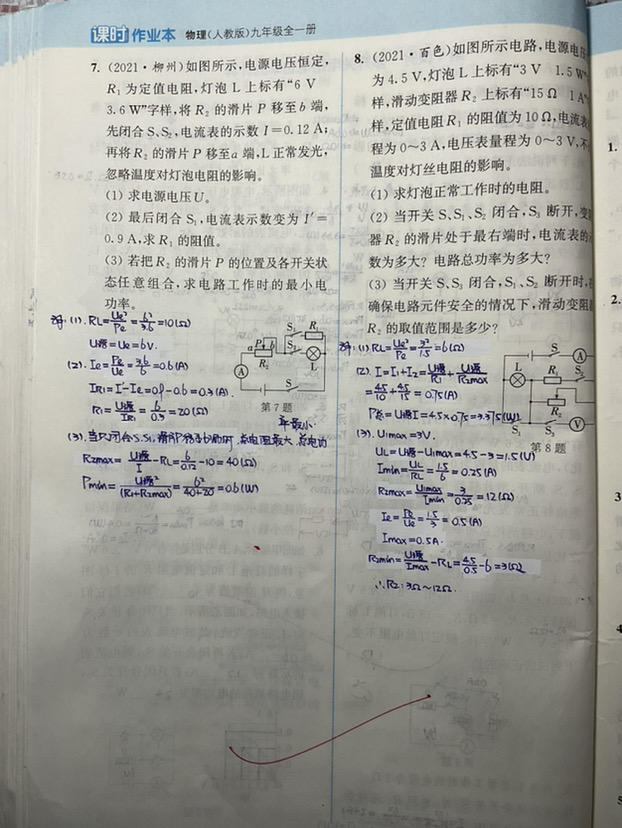 课时作业本 物理(人教版)九年级全一册
7. (2021·柳州)如图所示,电源电压恒定,
R₁ 为定值电阻,灯泡 L 上标有“6 V
3.6 W”字样,将 R₂ 的滑片 P 移至 b 端,
先闭合 S、S₂,电流表的示数 I=0.12 A;
再将 R₂ 的滑片 P 移至 a 端,L 正常发光,
忽略温度对灯泡电阻的影响。
(1) 求电源电压 U。
(2) 最后闭合 S₁,电流表示数变为 I′=
0.9 A,求 R₁ 的阻值。
(3) 若把 R₂ 的滑片 P 的位置及各开关状
态任意组合,求电路工作时的最小电
功率。
解:(1). RL=Ue²/Pe=6²/3.6=10(Ω)
U源=Ue=6V.
(2). Ie=Pe/Ue=3.6/6=0.6(A)
IR1=I′-Ie=0.9-0.6=0.3(A).
R1=U源/IR1=6/0.3=20(Ω)
S₁ R₁
a P b S₂
R₂ L
A
S
第 7 题
(3). 当只闭合S、S1,滑片P移至b端时,总电阻最大,总电功
率最小.
R2max=U源/I-RL=6/0.12-10=40(Ω)
Pmin=U源²/(R1+R2max)=6²/40+20=0.6(W)
8. (2021·百色)如图所示电路,电源电压
为 4.5 V,灯泡 L 上标有“3 V 1.5 W”
样,滑动变阻器 R₂ 上标有“15 Ω 1 A”
样,定值电阻 R₁ 的阻值为 10 Ω,电流表
程为 0~3 A,电压表量程为 0~3 V,不
温度对灯丝电阻的影响。
(1) 求灯泡正常工作时的电阻。
(2) 当开关 S、S₁、S₂ 闭合,S₃ 断开,变
器 R₂ 的滑片处于最右端时,电流表的
数为多大? 电路总功率为多大?
(3) 当开关 S、S₃ 闭合,S₁、S₂ 断开时,
确保电路元件安全的情况下,滑动变阻
R₂ 的取值范围是多少?
解:(1) RL=Ue²/Pe=3²/1.5=6(Ω)
(2). I=I1+I2=U源/R1+U源/R2max
=4.5/10+4.5/15=0.75(A)
P总=U源I=4.5×0.75=3.375(W)
(3). U1max=3V.
UL=U源-U1max=4.5-3=1.5(V)
Imin=UL/RL=1.5/6=0.25(A)
R2max=U1max/Imin=3/0.25=12(Ω)
Ie=Pe/Ue=1.5/3=0.5(A)
Imax=0.5A.
R2min=U源/Imax-RL=4.5/0.5-6=3(Ω)
∴R2:3Ω~12Ω.
S A
L R₁ S₂
R₂
V
S₁ S₃
第 8 题
1.
2.
3
4